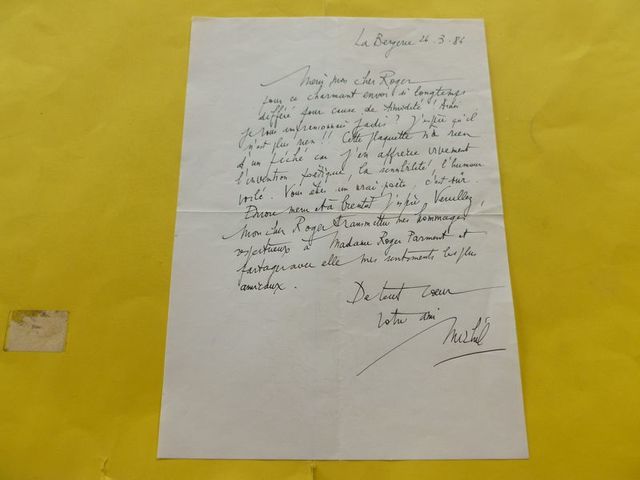 La Bergerie 26.3.86
Merci, mon cher Roger
pour ce charmant envoi si longtemps
différé pour cause de timidité ! Ainsi
je vous impressionnais jadis ? J'espère qu'il
n'est plus rien !! Cette plaquette n'a rien
d'un péché car j'en apprécie vivement
l'invention poétique, la sensibilité, l'humour
voilé. Vous êtes un vrai poète, c'est sûr.
Encore merci et à bientôt j'espère. Veuillez,
mon cher Roger transmettre mes hommages
respectueux à Madame Roger Parment et
partager avec elle mes sentiments les plus
amicaux.
De tout coeur
votre ami
Michel